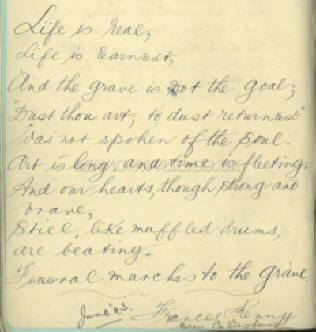 Life is real,
Life is earnest,
And the grave is not the goal;
"Dust thou art, to dust returnest"
Was not spoken of the soul.
Art is long, and time is fleeting,
And our hearts, though strong and
brave,
Still, like muffled drums,
are beating.
Funeral marches to the grave.
June '03. Frances Kenny